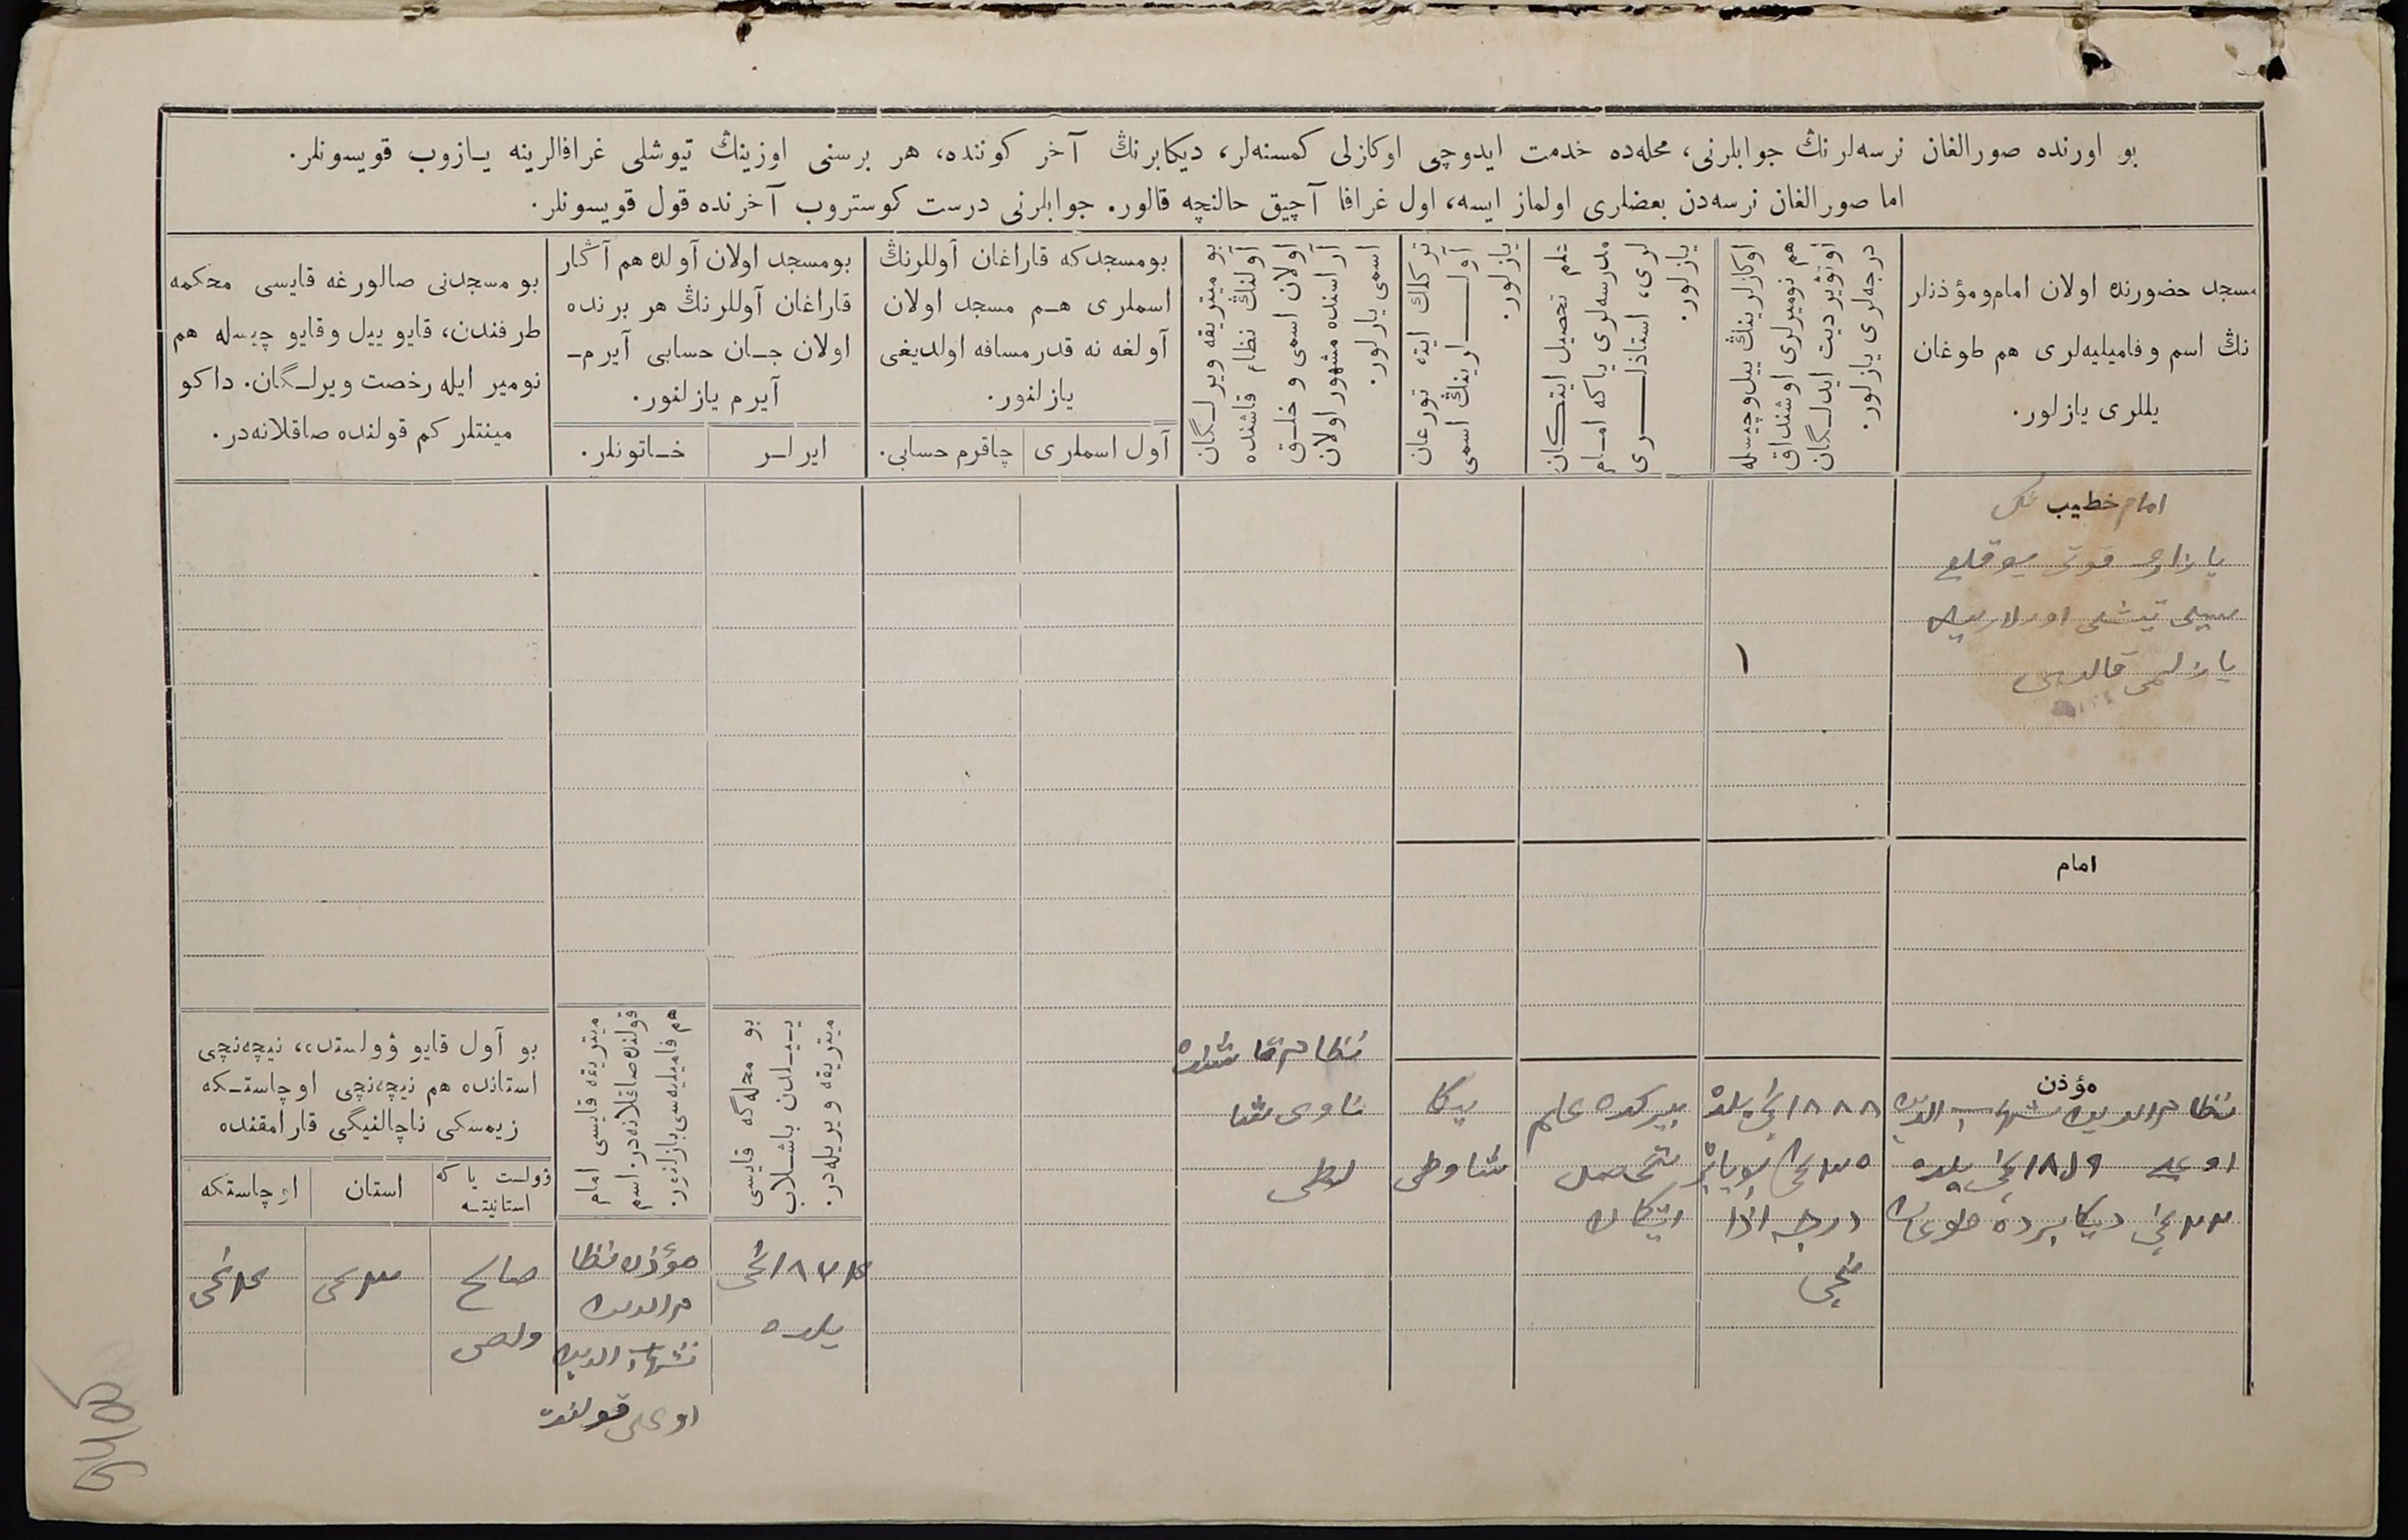 بو اورنده صورالغان نرسه‌لرنڭ جوابلرنی، محله‌ده خدمت ایدوچی اوكازلی كمسنه‌لر، دیكابرنڭ آخر كوننده، هر برسنی اوزینڭ تیوشلی غرافالرینه یـازوب قویسونلر.
اما صورالغان نرسه‌دن بعضلری اولماز ایسه، اول غرافا آچیق حالنچه قالور. جوابلرنی درست كوستروب آخرنده قول قویسونلر.
مسجد حضورنده اولان امام و مؤذنلر
نڭ اسم وفامیلیه‌لری هم طوغان
یللری یازلور.
اوكازلرینڭ ییل و چیسله
هم نومیرلری اوشنداق
اوتوێردیت ایدلـگان
درجه‌لری یازلور.
علم تحصیل ایتـكان
مدرسه‌لری یاكه امـام
لری، استاذلـــری
یازلور.
تركلك ایته تورغان
آولــلرینڭ اسمی
یازلور.
بو میتریقه ویرلـگان
آولنڭ نظام قاشنده
اولان اسمی و خلـق
آراسنده مشهور اولان
اسمی یازلور.
بومسجدكه قاراغان آوللرنڭ
اسملری هـم مسجد اولان
آولغه نه قدر مسافه اولدیغی
یازلنور.
آول اسملری
چاقرم حسابی.
بومسجد اولان آولده هم آڭار
قاراغان آوللرنڭ هر برنده
اولان جـان حسابی آیرم-
آیرم یازلنور.
ایرلـر
خـاتونلر.
بو مسجدنی صالورغه قایسی محكمه
طرفندن، قایو ییل وقایو چیسله هم
نومیر ایله رخصت ویرلـگان. داكو
مینتلر كم قولنده صاقلانه‌در.
امام خطیب
یوقلغ
تیشلی
قالدی
۱
امام
مؤذن
نظام الدین شهاب الدین
اوغلی ۱۸۵۹ نچی یلده
۲۳ نچی دیكابرده طوغان
۱۸۸۸ نچی یلده
درجه اذا
نچی
علم
تحصیل
ایتكان
یكا
شاوطی
نظام قاشنده
ناوی شا
وطی
بو محله‌گه قایسی
ییـلدن باشـلاب
میتریقه ویریله‌در.
میتریقه قایسی امام
قولنده صاقلانه‌در. اسم
هم فامیلیه‌سی یازلنور.
بو آول قایو ؤولستده، نیچه‌نچی
استانده هم نیچه‌نچی اوچاستـكه
زیمسكی ناچالنیگی قارامقنده
ؤولست یاكه
استانیتسه
استان
اوچاستكه
۱۸۷۴ نچی
یلده
مؤذن نظا
م الدین
شهاب الدین
اوغلی قولنده
صالح
ولص
۳ نچی
۴ نچی